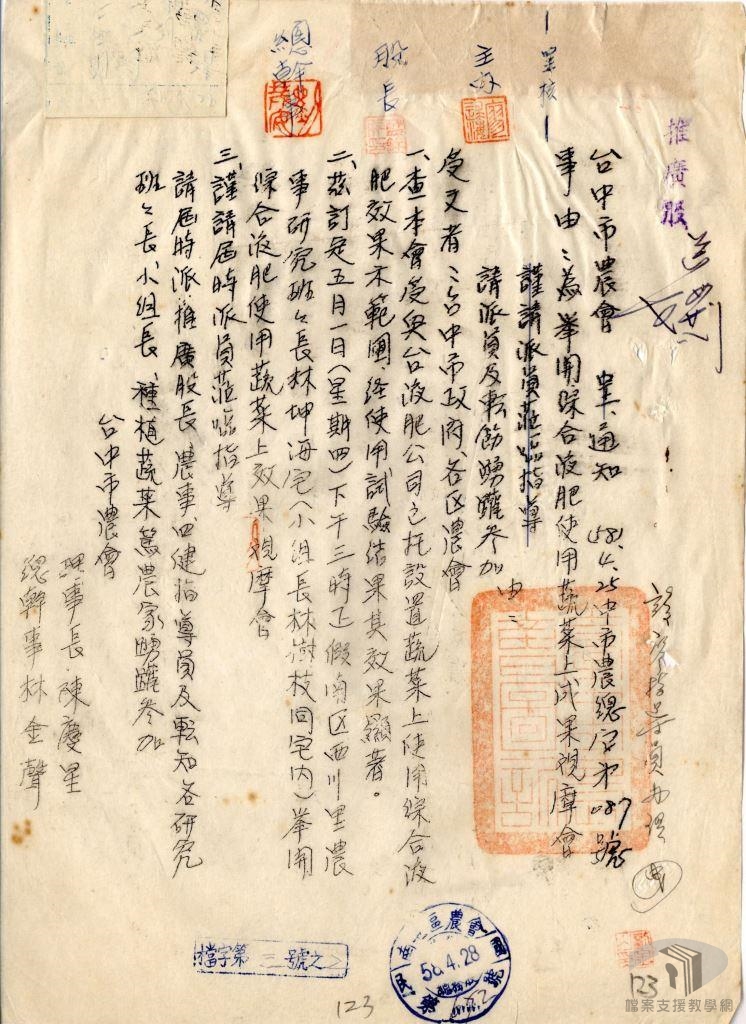 推廣股
台中市農會 通知 58.4.25中市農總字第087號
事由：為舉開綜合液肥使用蔬菜上成果視摩會
謹請派員蒞臨指導
請派員及転飭踴躍参加 由：
受文者：台中市政府、各区農會
一、查本會受興台液肥公司之托設置蔬菜上使用綜合液
肥效果示範圃、経使用試驗結果其效果顯著。
二、茲訂定五月一日（星期四）下午三時正假南区西川里農
事研究班々長林坤海宅（小組長林樹枝同宅內）舉開
綜合液肥使用蔬菜上效果視摩會
三、謹請屆時派員蒞臨指導
請屆時派推廣股長、農事、四健指導員及転知各研究
班々長、小組長、種植蔬菜篤農家踴躍参加
台中市農會
理事長 陳慶星
總幹事 林金聲
股長
總幹事
區農會
58.4.28
檔字第 三號之
123
123
檔案支援教學網